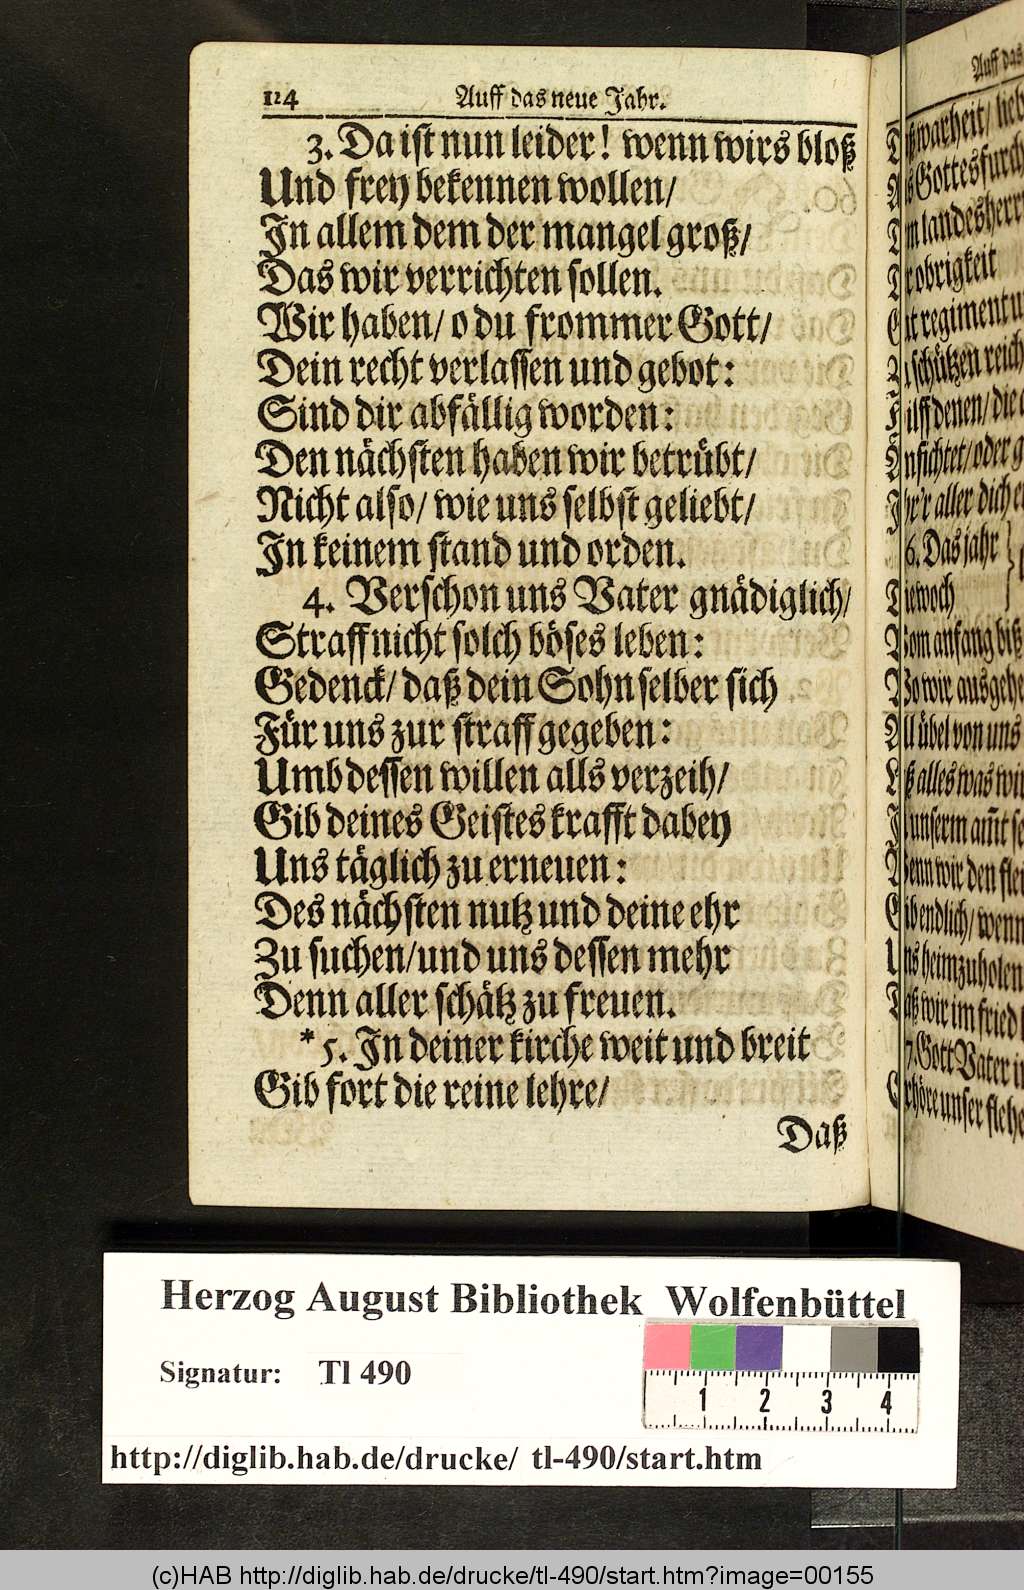 124 Auff das neue Jahr.
3. Da ist nun leider! wenn wirs bloß
Und frey bekennen wollen/
In allem dem der mangel groß/
Das wir verrichten sollen.
Wir haben/ o du frommer Gott/
Dein recht verlassen und gebot:
Sind dir abfällig worden:
Den nächsten haben wir betrübt/
Nicht also/ wie uns selbst geliebt/
In keinem stand und orden.
4. Verschon uns Vater gnädiglich/
Straff nicht solch böses leben:
Gedenck/ daß dein Sohn selber sich
Für uns zur straff gegeben:
Umb dessen willen alls verzeih/
Gib deines Geistes krafft dabey
Uns täglich zu erneuen:
Des nächsten nutz und deine ehr
Zu suchen/ und uns dessen mehr
Denn aller schätz zu freuen.
*5. In deiner kirche weit und breit
Gib fort die reine lehre/
Daß
Auff das
warheit/
Gottesfurch
landesherr
obrigkeit
regiment
schützen reich
denen/ die
oder
aller dich
6. Das jahr
Die woch
Vom anfang biß
Wo wir ausgehe
All übel von uns
alles was wir
unserm
Wenn wir den
endlich/ wenn
heimzuholen
wir im fried
7. Gott Vater
unser flehe
Herzog August Bibliothek Wolfenbüttel
Signatur: Tl 490
1 2 3 4
http://diglib.hab.de/drucke/ tl-490/start.htm
(c)HAB http://diglib.hab.de/drucke/tl-490/start.htm?image=00155